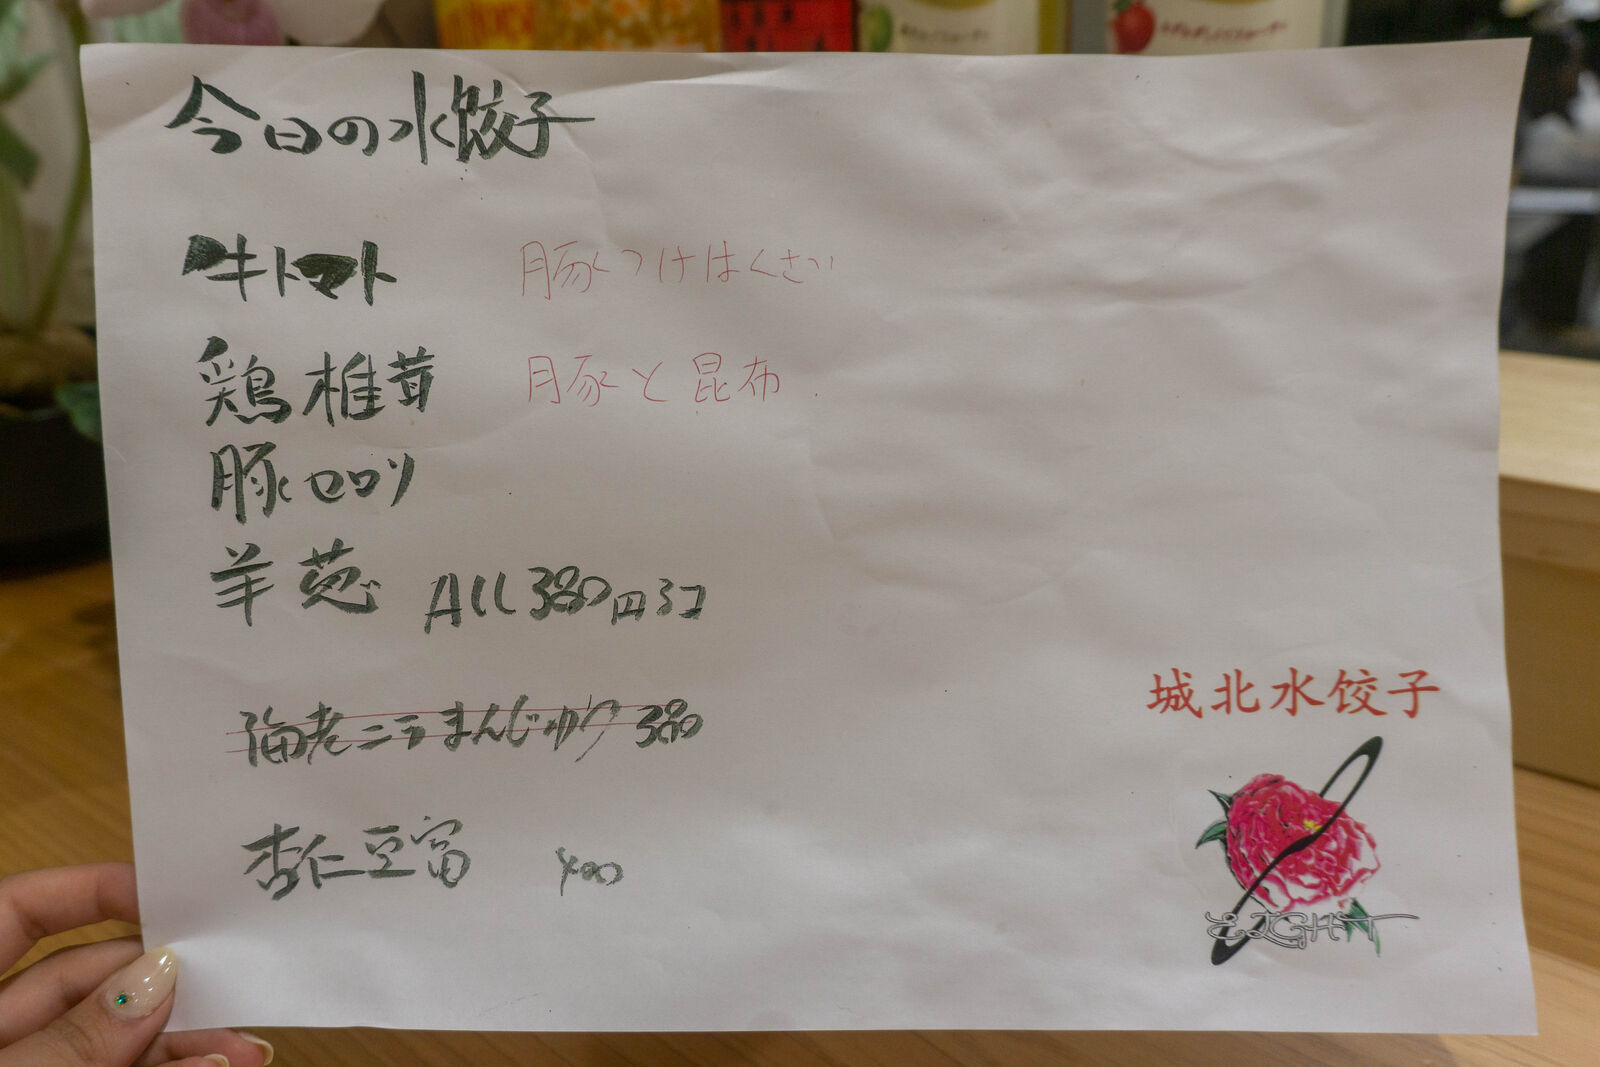 今日の水餃子
牛トマト 豚つけはくさい
鶏椎茸 豚と昆布
豚セロリ
羊葱 All 380円 3コ
海老ニラまんじゅう 380
杏仁豆富
城北水餃子
EIGHT